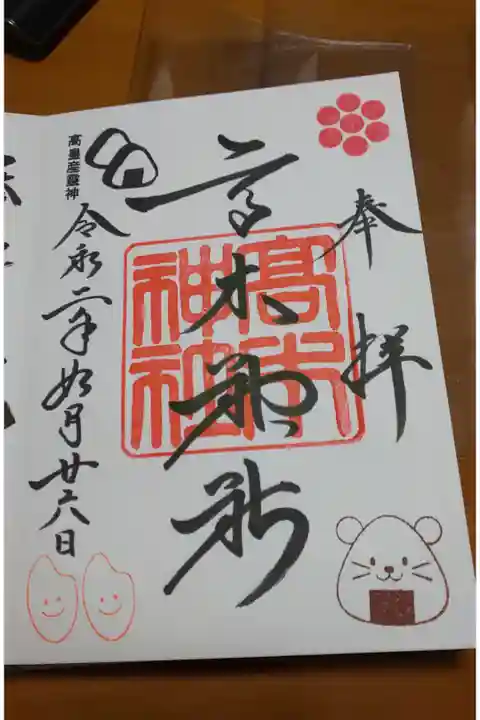 奉拝
高木神社
高木神社
高皇産靈神
令和二年如月廿六日